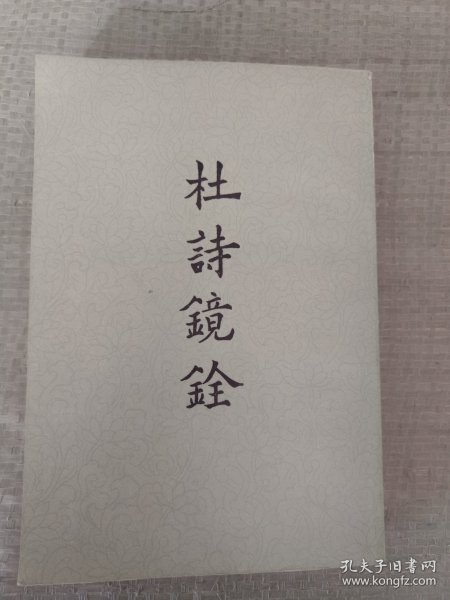 杜詩鏡銓
孔夫子旧书网
www.kongfz.com